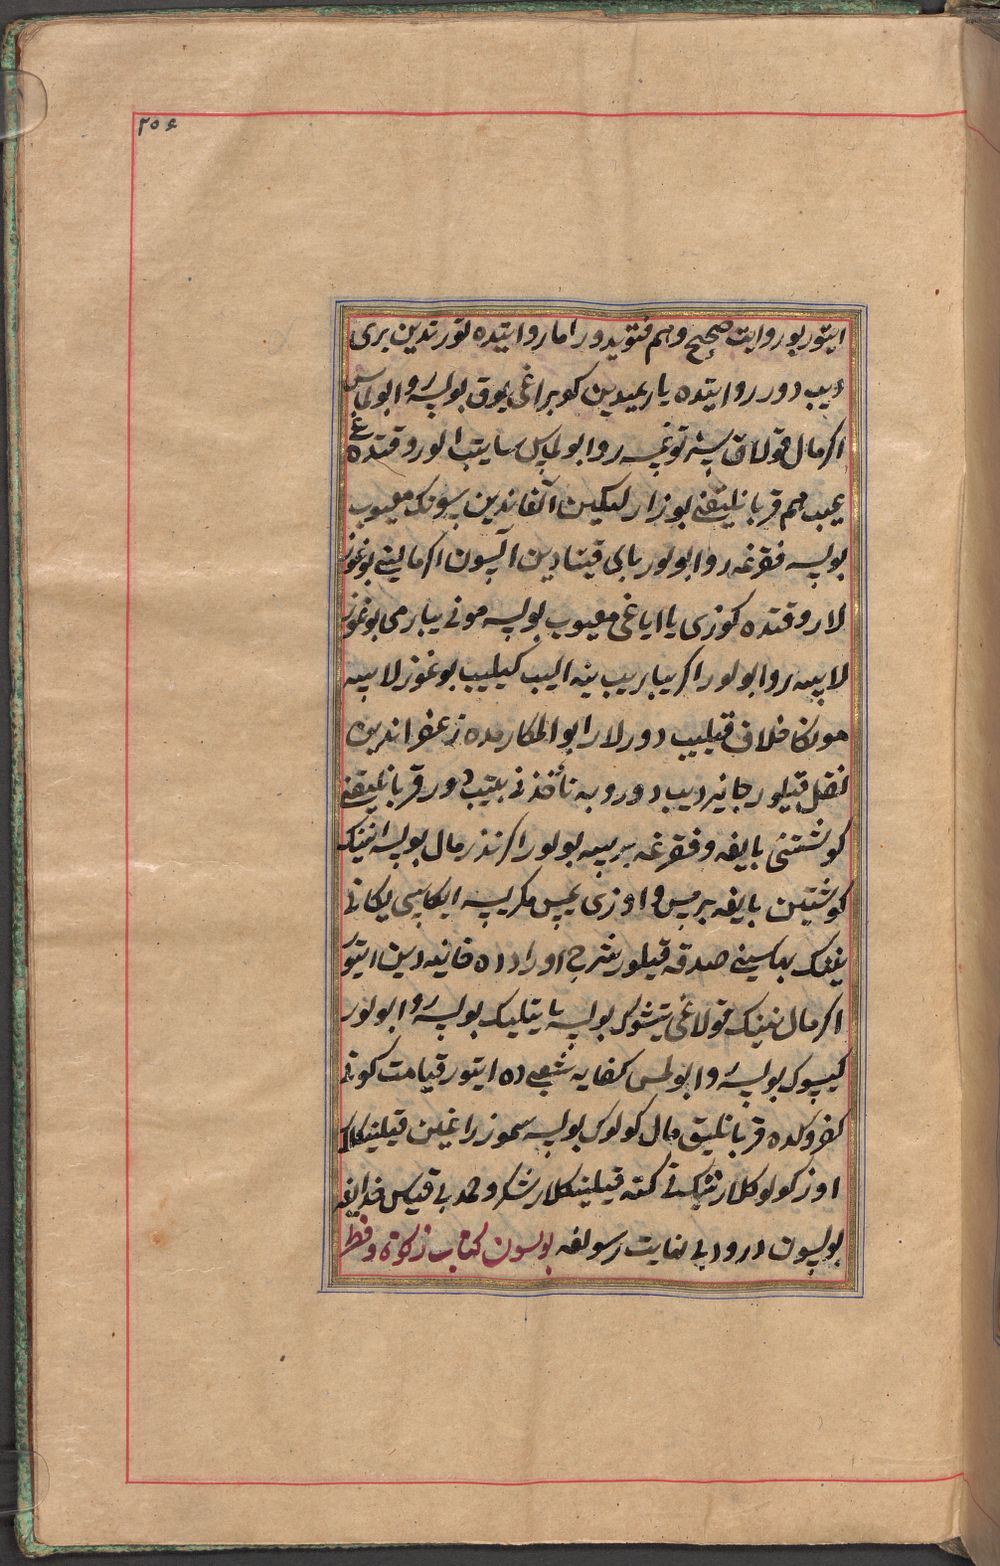 ۲۵۶
ایتور بو روایت صحیح و هم فتویدور اما روایتده تورتدین بری
دیب دور روایتده یاریمیدین کوبراغی یوق بولسه روا بولماس
اکر مال قولاق سیز توغسه روا بولماس ساتیب الور وقتده
عیب هم قربانلیقنی بوزار لیکین آلغاندین سونک معیوب
بولسه فقرغه روا بولور بای قیتادین آلسون اکر مالینی بوغوز
لار وقتده کوزی یا ایاغی معیوب بولسه مونی یبارمی بوغوز
لاسه روا بولور اکر یباریب ینه الیب کیلیب بوغوزلاسه
مونکا خلاف قیلیب دورلار ابوالمکارمده زعفراندین
نقل قیلور جانیز دیب دور وبه نأخذ نی بیتیب دور قربانلیقنی
کوشتنی بایغه و فقرغه بیرسه بولور اکر نذر مال بولسه انینک
کوشتین بایغه بیرمس و اوزی یمس مکر یسه ایکاسی یکانی
نینک بهاسینی صدقه قیلور شرح اوراد ده خانیه دین ایتور
اکر مال نینک قولاغی تیشوک بولسه یا تیلیک بولسه روا بولور
کیسوک بولسه روا بولمس کفایه شعبی ده ایتور قیامت کونی
قربانلیق مال کولوک بولسه سموز راغین قیلینکلار
اوز کولوکلارنینک نی کته قیلینکلار شکر و حمد بی قیاس خدایغه
بولسون درود بی نهایت رسولغه بولسون کتاب زکوة و فطر